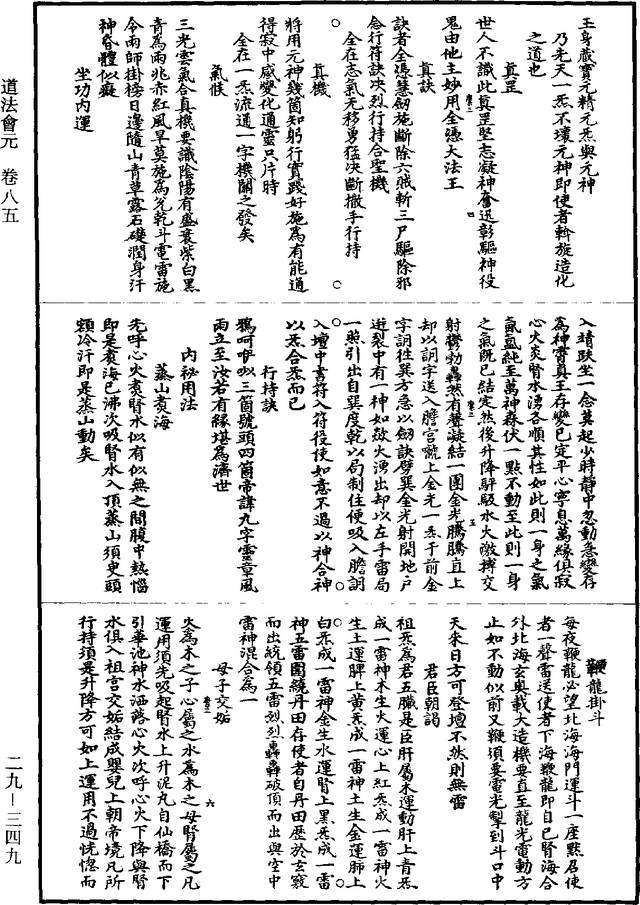 道法會元　卷八五
二九—三四九
玉身嚴實元精元炁與元神
乃先天一炁不壞元神即使者斡旋造化
之道也
真罡
世人不識此真罡堅志凝神奮迅彰驅神役
鬼由他主妙用全憑大法王
真訣
訣者全憑慧劒施斷除六賊斬三尸驅除邪
念行符訣决烈行持合聖機
全在志氣无移勇猛决斷撒手行持
真機
將用元神幾箇知躬行實踐好施為有能通
得寂中感變化通靈只片時
全在一炁流通一字機關之發矣
氣候
三光雲氣合真機要識陰陽有盛衰紫白黑
青為雨兆赤紅風旱莫施為兊乾斗電雷施
令雨師掛榜日邊隨山青草露石礎潤身汗
神昏體似癡
坐功内運
入靖趺坐一念莫起少時靜中忽動急變存
為神霄真王存變已定平心寧息萬緣俱寂
心火炎腎水湧各順其性如此則一身之氣
氤氳純至萬神森伏一點不動至此則一身
之氣既已結定然後升降呼吸水火激搏交
射欝勃轟然有聲凝結一團金光騰騰直上
却以訶字送入膽宮竅上金光一炁于前金
字訶徃巽方急以劒訣劈巽金光射開地户
迸裂中有一神如救火湧出却以左手雷局
一照引出自巽度乾以局制住便吸入膽訶
入壇中書符入符役使如意不過以神合神
以炁合炁而已
行持訣
鴉呵㖿㕧三箇號頭四箇帝諱九字靈章風
雨立至汝若有緣堪為濟世
内秘用法
蒸山煑海
先呼心火煑腎水似有似無之間腹中熱惱
即是煑海已沸次吸腎水入頂蒸山須臾頭
額冷汗即是蒸山動矣
鞭龍掛斗
每夜鞭龍必望北海海門運斗一座㸃召使
者一聲雷送使者下海鞭龍即自已腎海合
外北海玄奥載大造機要直至龍光電動方
止如不動似前又鞭須要電光掣到斗口中
天來日方可登壇不然則無雷
君臣朝謁
祖炁為君五臟是臣肝屬木運動肝上青炁
成一雷神木生火運心上紅炁成一雷神火
生土運脾上黄炁成一雷神土生金運肺上
白炁成一雷神金生水運腎上黑炁成一雷
神五雷圍繞丹田存使者自丹田歷於玄竅
而出統領五雷烈烈轟轟破頂而出與空中
雷神混合為一
母子交姤
火為木之子心屬之水為木之母腎屬之凡
運用須先吸起腎水上升泥丸自仙橋而下
引華池神水洒落心火次呼心火下降與腎
水俱入祖宮交姤結成嬰兒上朝帝境凡所
行持須是升降方可如上運用不過恍惚而